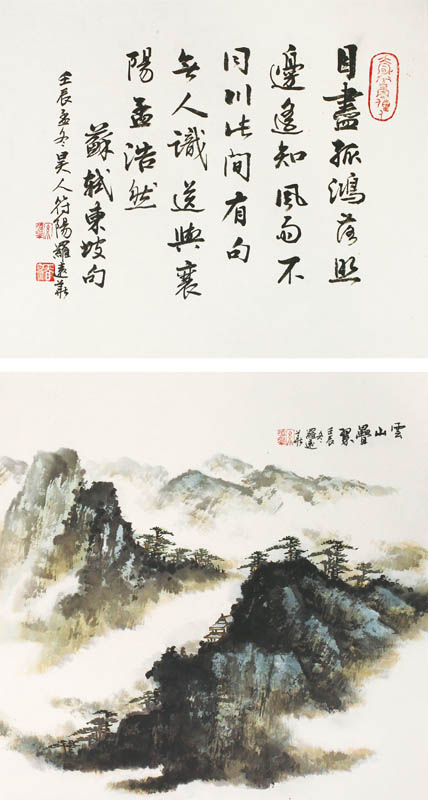 目盡孤鴻落照
邊遙知風雨不
同川此間有句
無人識送與襄
陽孟浩然
蘇軾東坡句
壬辰孟冬吳人符陽羅遠莊
雲山疊翠
壬辰
冬
羅遠
莊